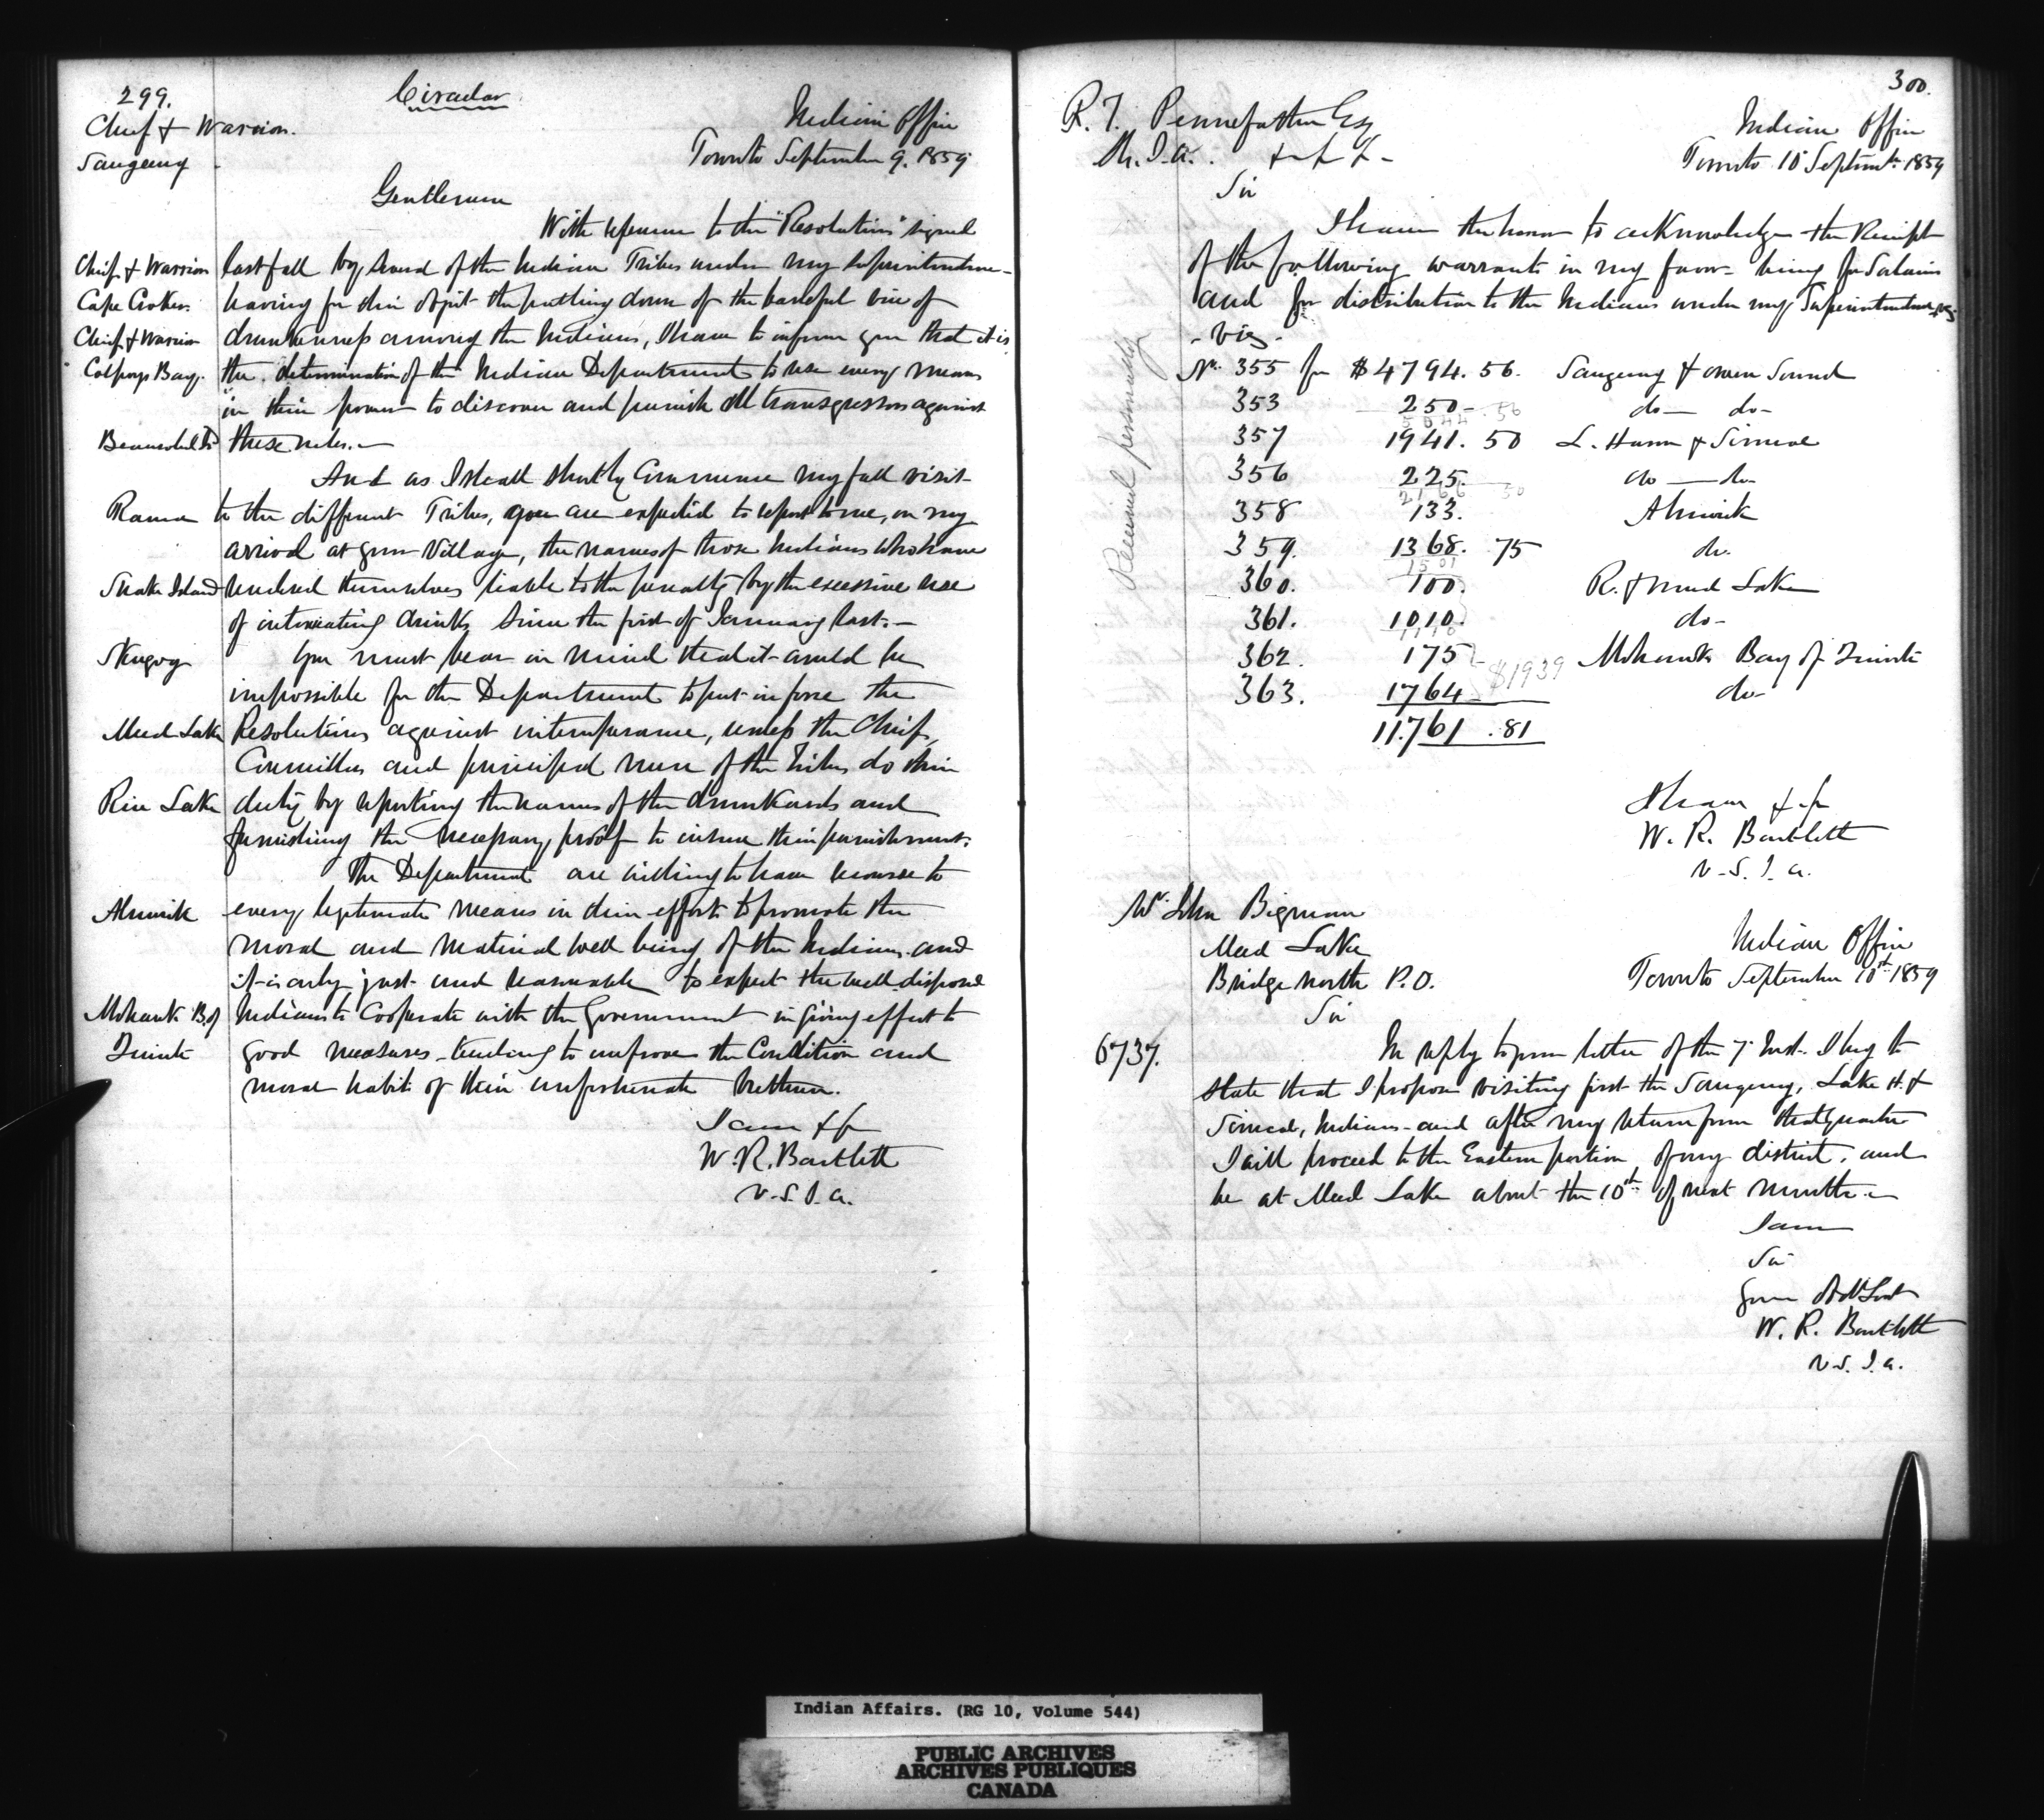 299.
Circular
Chief & Warriors.
Saugeeng
Indian Office
Toronto September 9. 1859
Gentlemen
With reference to the "Resolutions" signed
Chief & Warriors
last fall by several of the Indian Tribes under my Superintendence
Cape Croker.
having for their object the putting down of the baneful vice of
Chief & Warriors
drunkenness among the Indians, I have to inform you that it is
Colpoys Bay.
the determination of the Indian Department to use every means
in their power to discover and punish all transgressors against
Beausoleil Id
these rules.
And as I shall shortly Commence my fall visit
Rama
to the different Tribes, you are expected to report to me, on my
arrival at your Village, the names of those Indians who have
Snake Island
rendered themselves liable to the penalty by the excessive use
of intoxicating drinks since the first of January last.
Skugog
You must bear in mind that it would be
impossible for the Department to put in force the
Mud Lake
Resolutions against intemperance, unless the Chiefs,
Councillors and principal men of the Tribes do their
Rice Lake
duty by reporting the names of the drunkards and
furnishing the necessary proof to insure their punishment.
The Department are willing to have recourse to
Alnwick
every legitimate means in their efforts to promote the
moral and material well being of the Indians and
it is only just and reasonable to expect the well disposed
Mohawk B. of
Indians to Cooperate with the Government in giving effect to
Quinte
good measures tending to improve the Condition and
moral habits of their unfortunate brethren.
I am &c
W. R. Bartlett
V.S.I.A.
300.
R. T. Pennefather Esq
S.G.I.A. & & &
Indian Office
Toronto 10 Septembr 1859
Sir
I have the honor to acknowledge the Receipt
of the following warrants in my favor being for Salaries
and for distribution to the Indians under my Superintendence,
viz.
No. 355 for $4794.56. Saugeeng & Owen Sound
353 250 do do
5044.56
357 1941.50 L. Huron & Simcoe
356 225. do do
2166 50
358 133. Alnwick
359. 1368.75 do.
1501
360. 100. R. & Mud Lake
361. 1010. do
1110
362. 175 Mohawks Bay of Quinte
$1939
363. 1764 do
11.761.81
Received personally
I have &c
W. R. Bartlett
V.S.I.A.
Mr. John Bigman
Mud Lake
Bridge north P.O.
Indian Office
Toronto September 10th 1859
Sir
6737.
In reply to your letter of the 7 Inst. I beg to
state that I propose visiting first the Saugeeng, Lake H. &
Simcoe, Indians and after my return from that quarter
I will proceed to the Eastern portion of my district, and
be at Mud Lake about the 10th of next month.
I am
Sir
Your Obdt Servt
W. R. Bartlett
V.S.I.A.
Indian Affairs. (RG 10, Volume 544)
PUBLIC ARCHIVES
ARCHIVES PUBLIQUES
CANADA